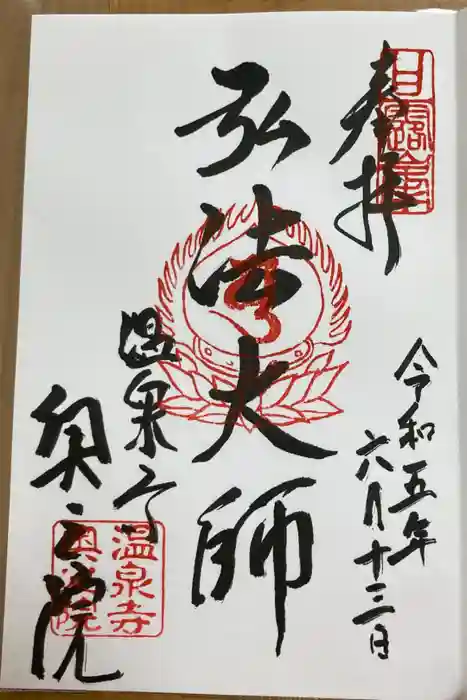 奉拝
令和五年
六月十三日
弘法大師
温泉寺
奥之院
温泉寺
奥之院